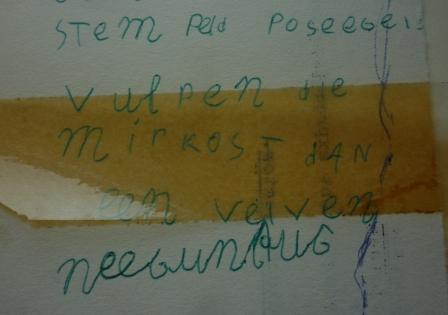 STEM PeLd POSEEGEIS
VULPEN dIE
MIRKOST dAN
EEN VEIVEN